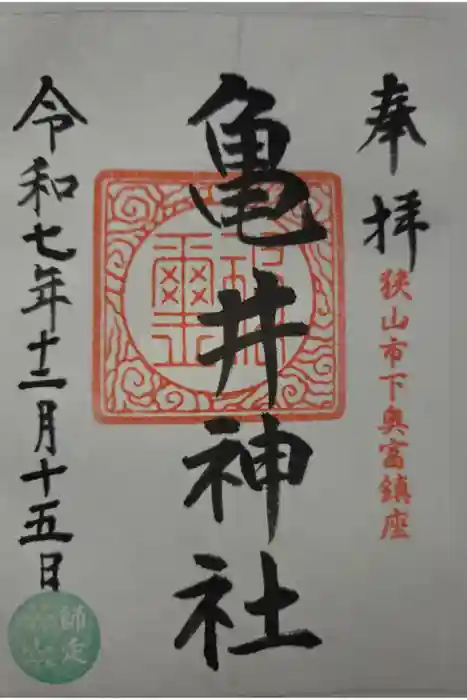 奉拝
狭山市下奥富鎮座
亀井神社
令和七年十二月十五日
師走